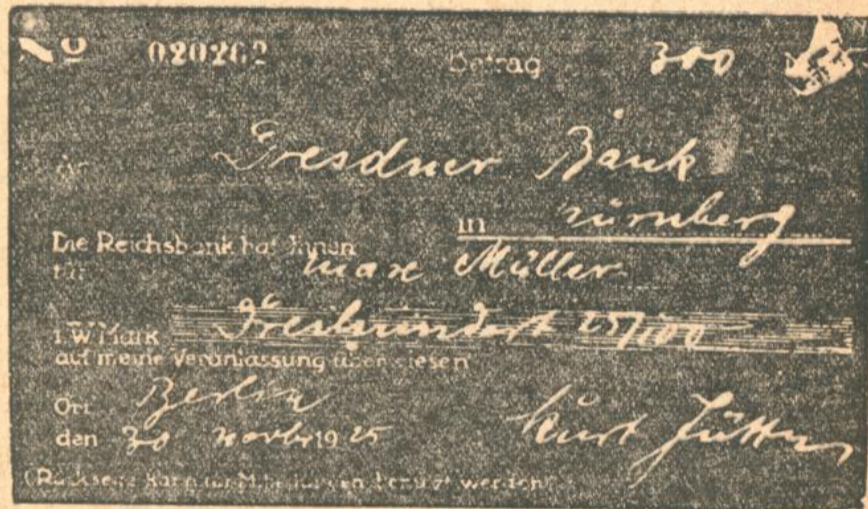 No 020262 Betrag 300
Dresdner Bank
in Nürnberg
Die Reichsbank hat Ihnen
für Max Müller
i.W. Mark Dreihundert 25/100
auf meine Veranlassung überwiesen
Ort Berlin
den 30 Novbr 1925 Kurt
(Rückseite kann für Mitteilungen benutzt werden)